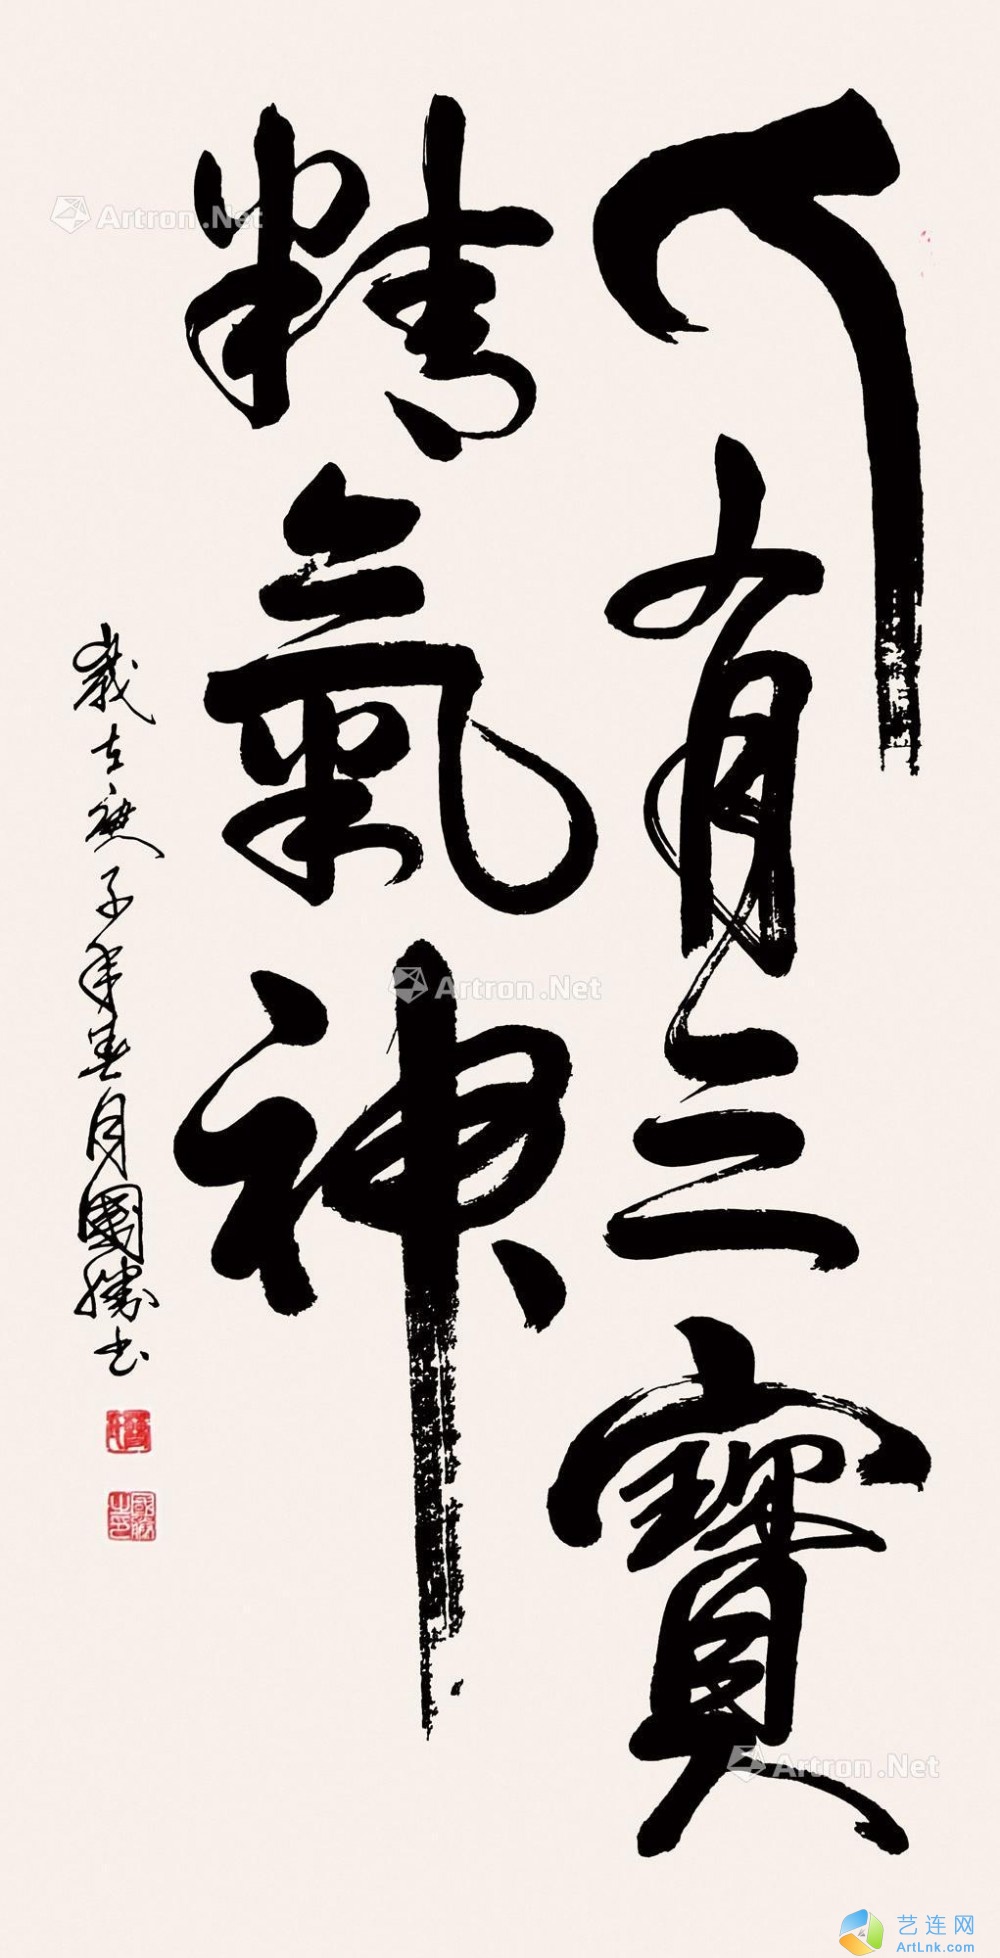 人有三寶
精氣神
歲在庚子年春月國勝書
國勝之印
Artron.Net
Artron.Net
Artron.Net
艺连网
ArtLnk.com